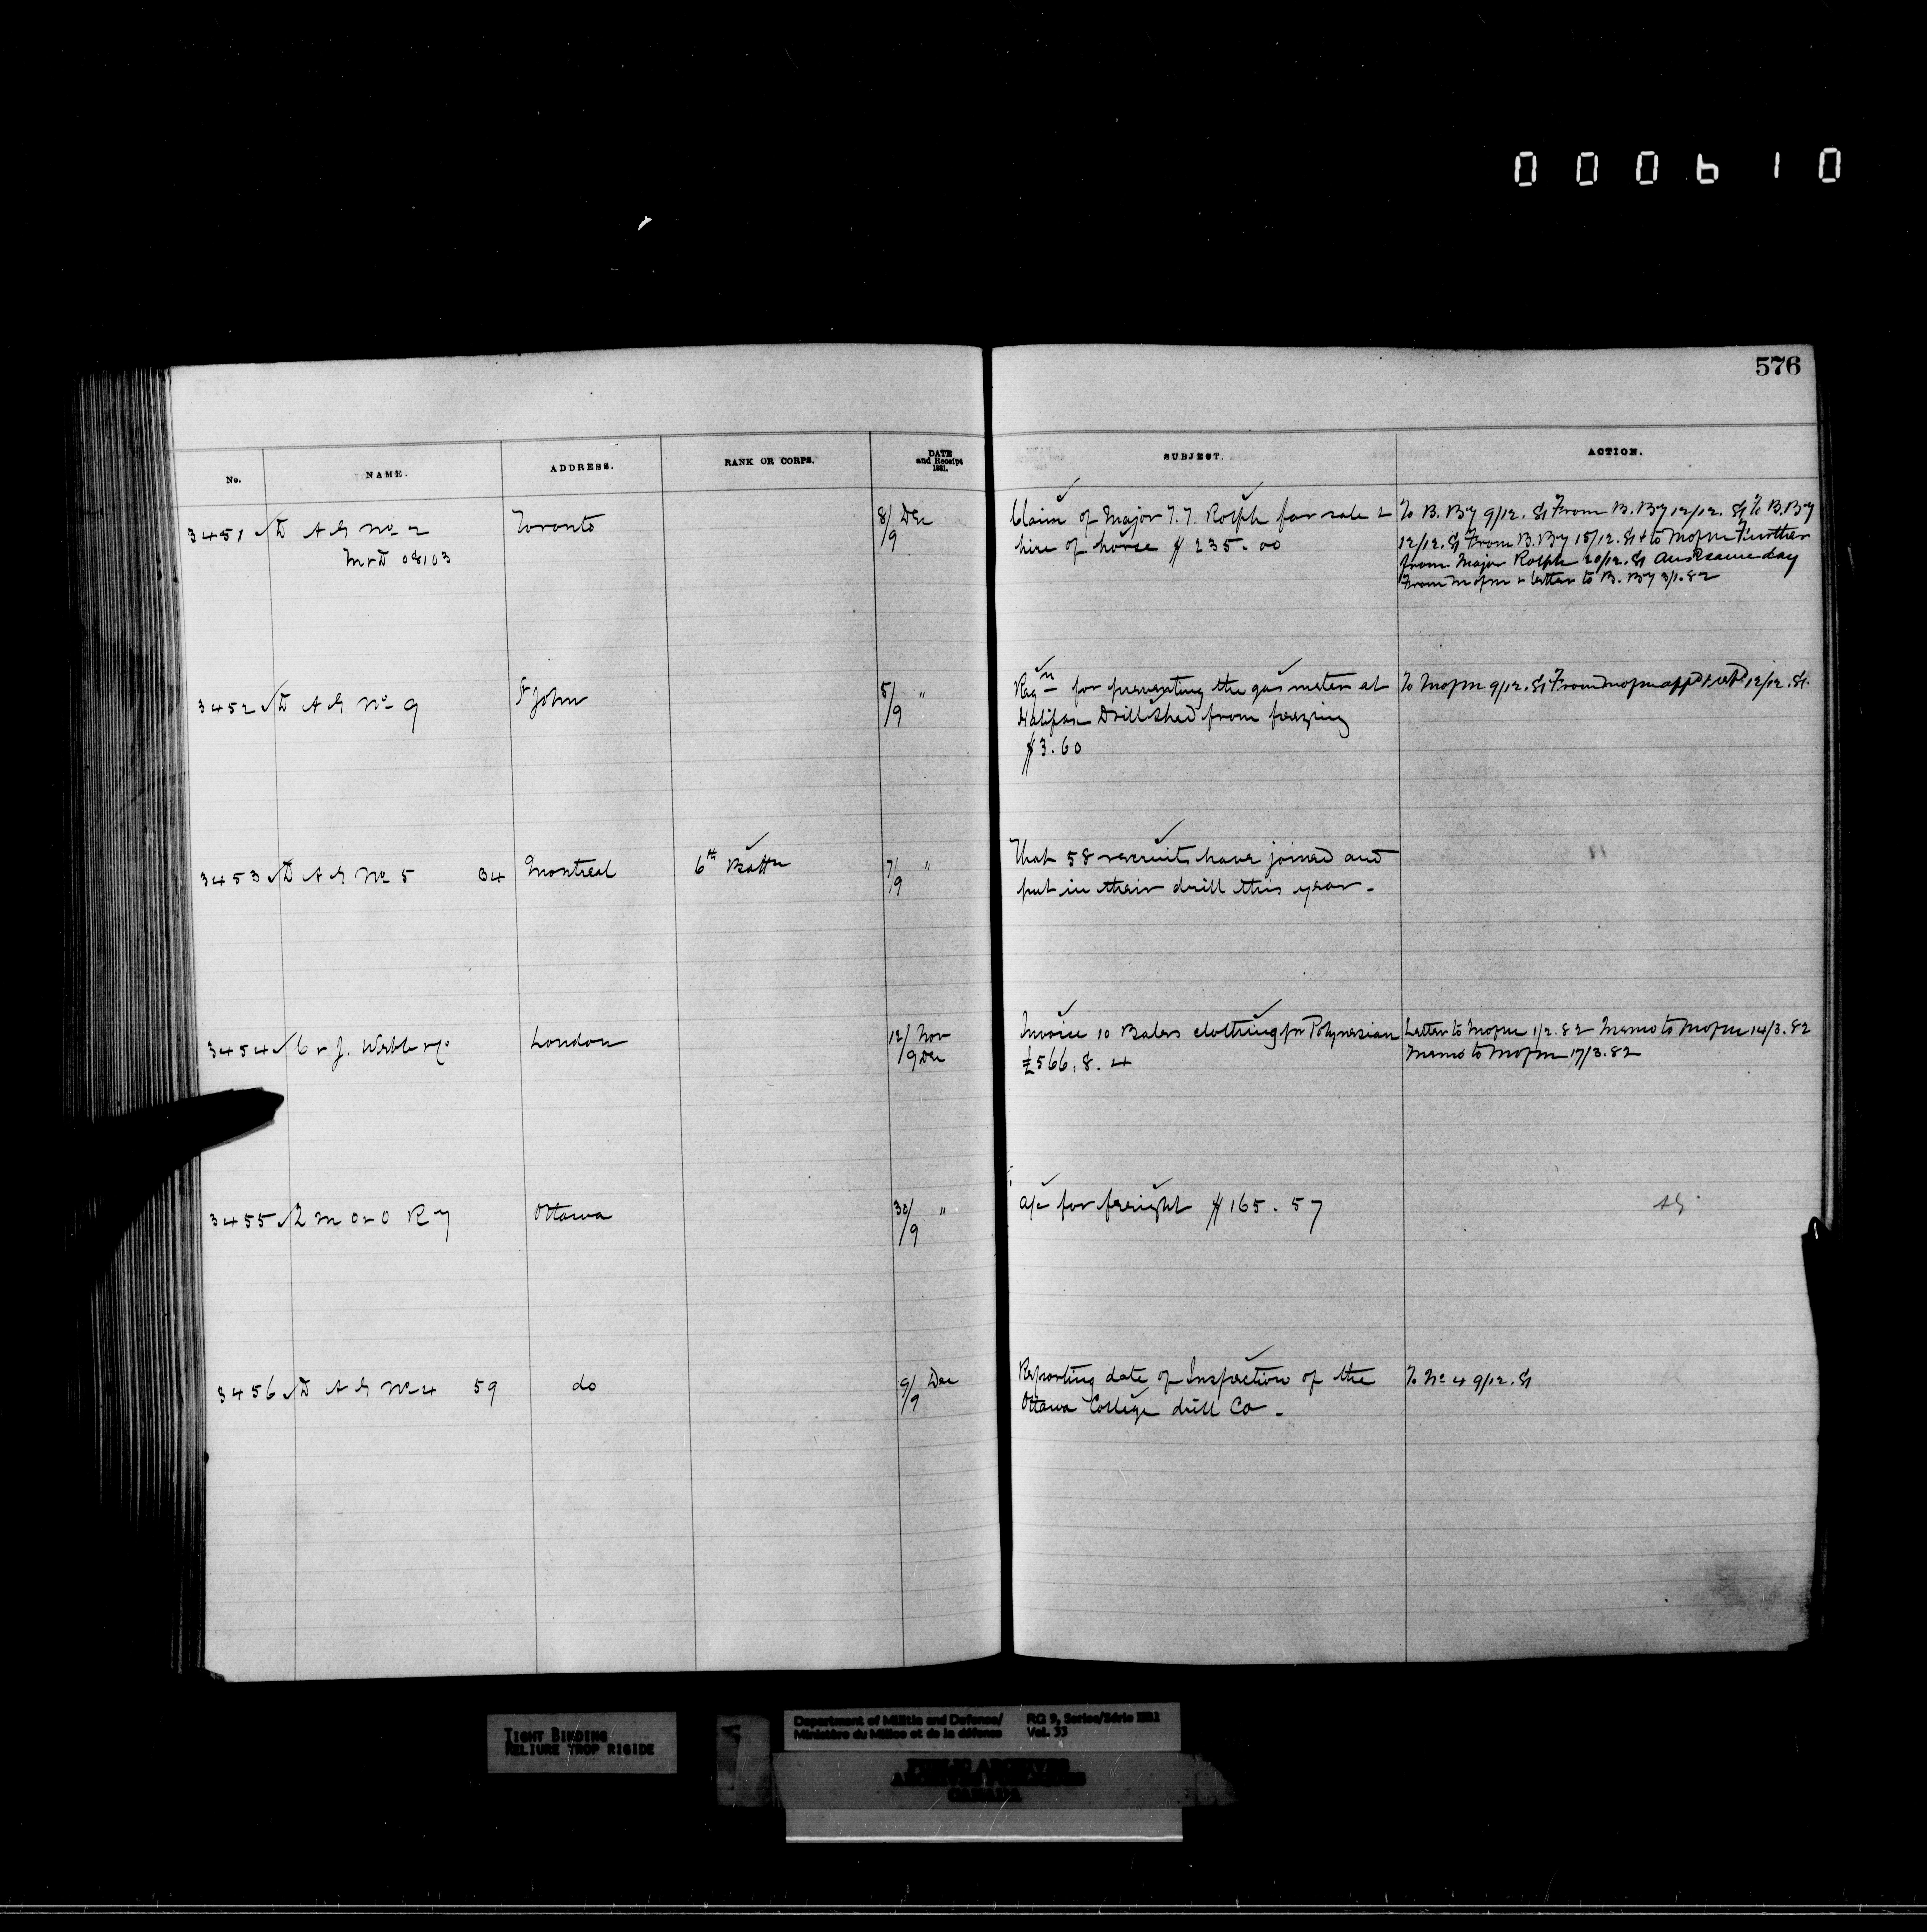 000610
576
No. NAME. ADDRESS. RANK OR CORPS. DATE and Receipt 1881. SUBJECT. ACTION.
3451 D A G No 2 Toronto 8/9 Dec Claim of Major T. T. Rolph for sale & To B. By 9/12. 81 From B. By 12/12. 81 To B. By
M & D 08103 hire of horse $235.00 12/12. 81 From B. By 15/12. 81 & to Mofm Further
from Major Rolph 20/12. 81 Ansd same day
From Mofm & letter to B. By 3/1.82
3452 D A G No 9 St John 5/9 " Reqn for preventing the gas meter at To Mofm 9/12. 81 From Mofm appd & retd 12/12. 81.
Halifax Drill Shed from freezing
$3.60
3453 D A G No 5 34 Montreal 6th Battn 7/9 " That 58 recruits have joined and
put in their drill this year.
3454 C & J. Webb & Co London 12/ Nov Invoice 10 Bales clothing pr Polynesian Letter to Mofm 1/2.82 Memo to Mofm 14/3.82
/9 Dec £566.8.4 Memo to Mofm 17/3.82
3455 Q M O & O Ry Ottawa 30/9 " a/c for freight $165.57
3456 D A G No 4 59 do 9/9 Dec Reporting date of Inspection of the To No 4 9/12. 81
Ottawa College drill Co.
TIGHT BINDING
RELIURE TROP RIGIDE
Department of Militia and Defence/ RG 9, Series/Série IIB1
Ministère du Milice et de la défense Vol. 33
PUBLIC ARCHIVES
ARCHIVES PUBLIQUES
CANADA